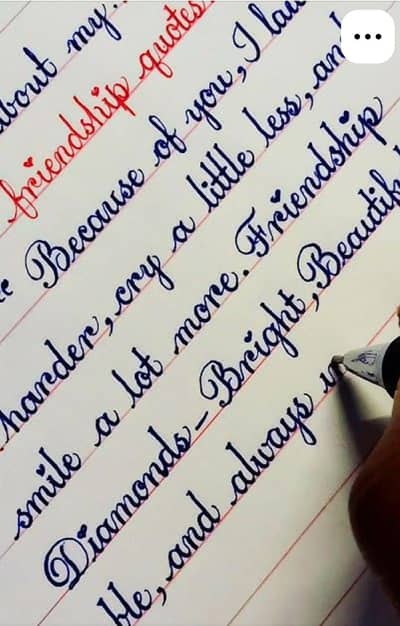 about my..
friendship quotes
Because of you, I
harder, cry a little less, and
smile a lot more. Friendship
Diamonds - Bright, Beautif
ble, and always in